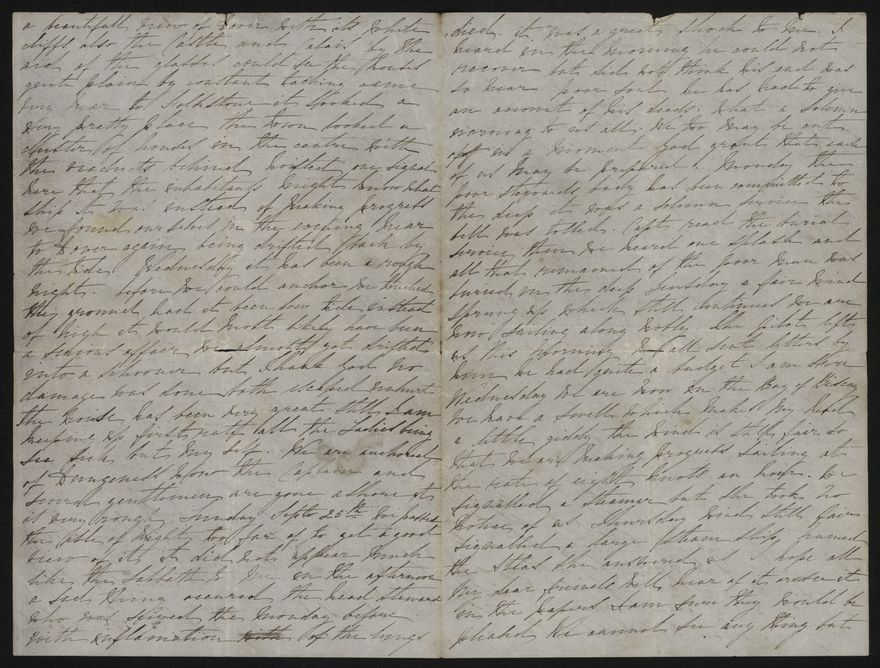 a beautifull view of Dover with its white
cliffs also the Castle and Calais by the
aid of the glasses could see the houses
quite plain by constant tacking came
very near to Folkstone it looked a
very pretty place the town looked a
cluster of houses in the centre with
the viaducts behind hoisted our signal
here that the inhabitants might know what
ship it was. instead of making progress
we found ourselves in the evening near
to Dover again being drifted back by
the tide Wednesday it has been a rough
night. before we could anchor we touched
the ground had it been low tide instead
of high it would most likely have been
a serious affair we almost got drifted
into a schooner but thank God no
damage was done both escaped unhurt
the has been very great still I am
keeping up first rate all the Ladies being
sea sick but my self. We are anchored
of Dungeness now the Captain and
several gentlemen are gone a shore it
is very rough. Sunday Septr 25th We passed
the Isle of Wight too far of to get a good
view of it it did not appear much
like the Sabbath to me in the afternoon
a sad thing occured the head Steward
who was seized the Monday before
with inflamation of the lungs
died. it was a great shock to me. I
heard in the morning he could not
recover but did not think his end was
so near poor soul he has had to give
an account of his deeds. What a solemn
warning to us all. We too may be cut
off in a moment god grant that each
of us may be prepared. Monday the
poor Stewards body has been committed to
the deep it was a solemn service the
bell was tolled. Capt. read the burial
service then we heard one splash and
all that remained of the poor man was
buried in the deep Tuesday a fair wind
sprung up which still continues we are
now sailing along nicely. The Pilot left
us this morning & all sent letters by
him we had quite a budget I am sure
Wednesday We are now in the Bay of Biscay
We have a swell which makes my head
a little giddy the wind is still fair so
that we are making progress sailing at
the rate of eight knots an hour. We
signalled a steamer but she took no
notice of us Thursday wind still fair
signalled a large steam ship named
the she answered us I hope all
my dear friends will hear of it or see it
in the papers I am sure they would be
pleased We cannot see any thing but